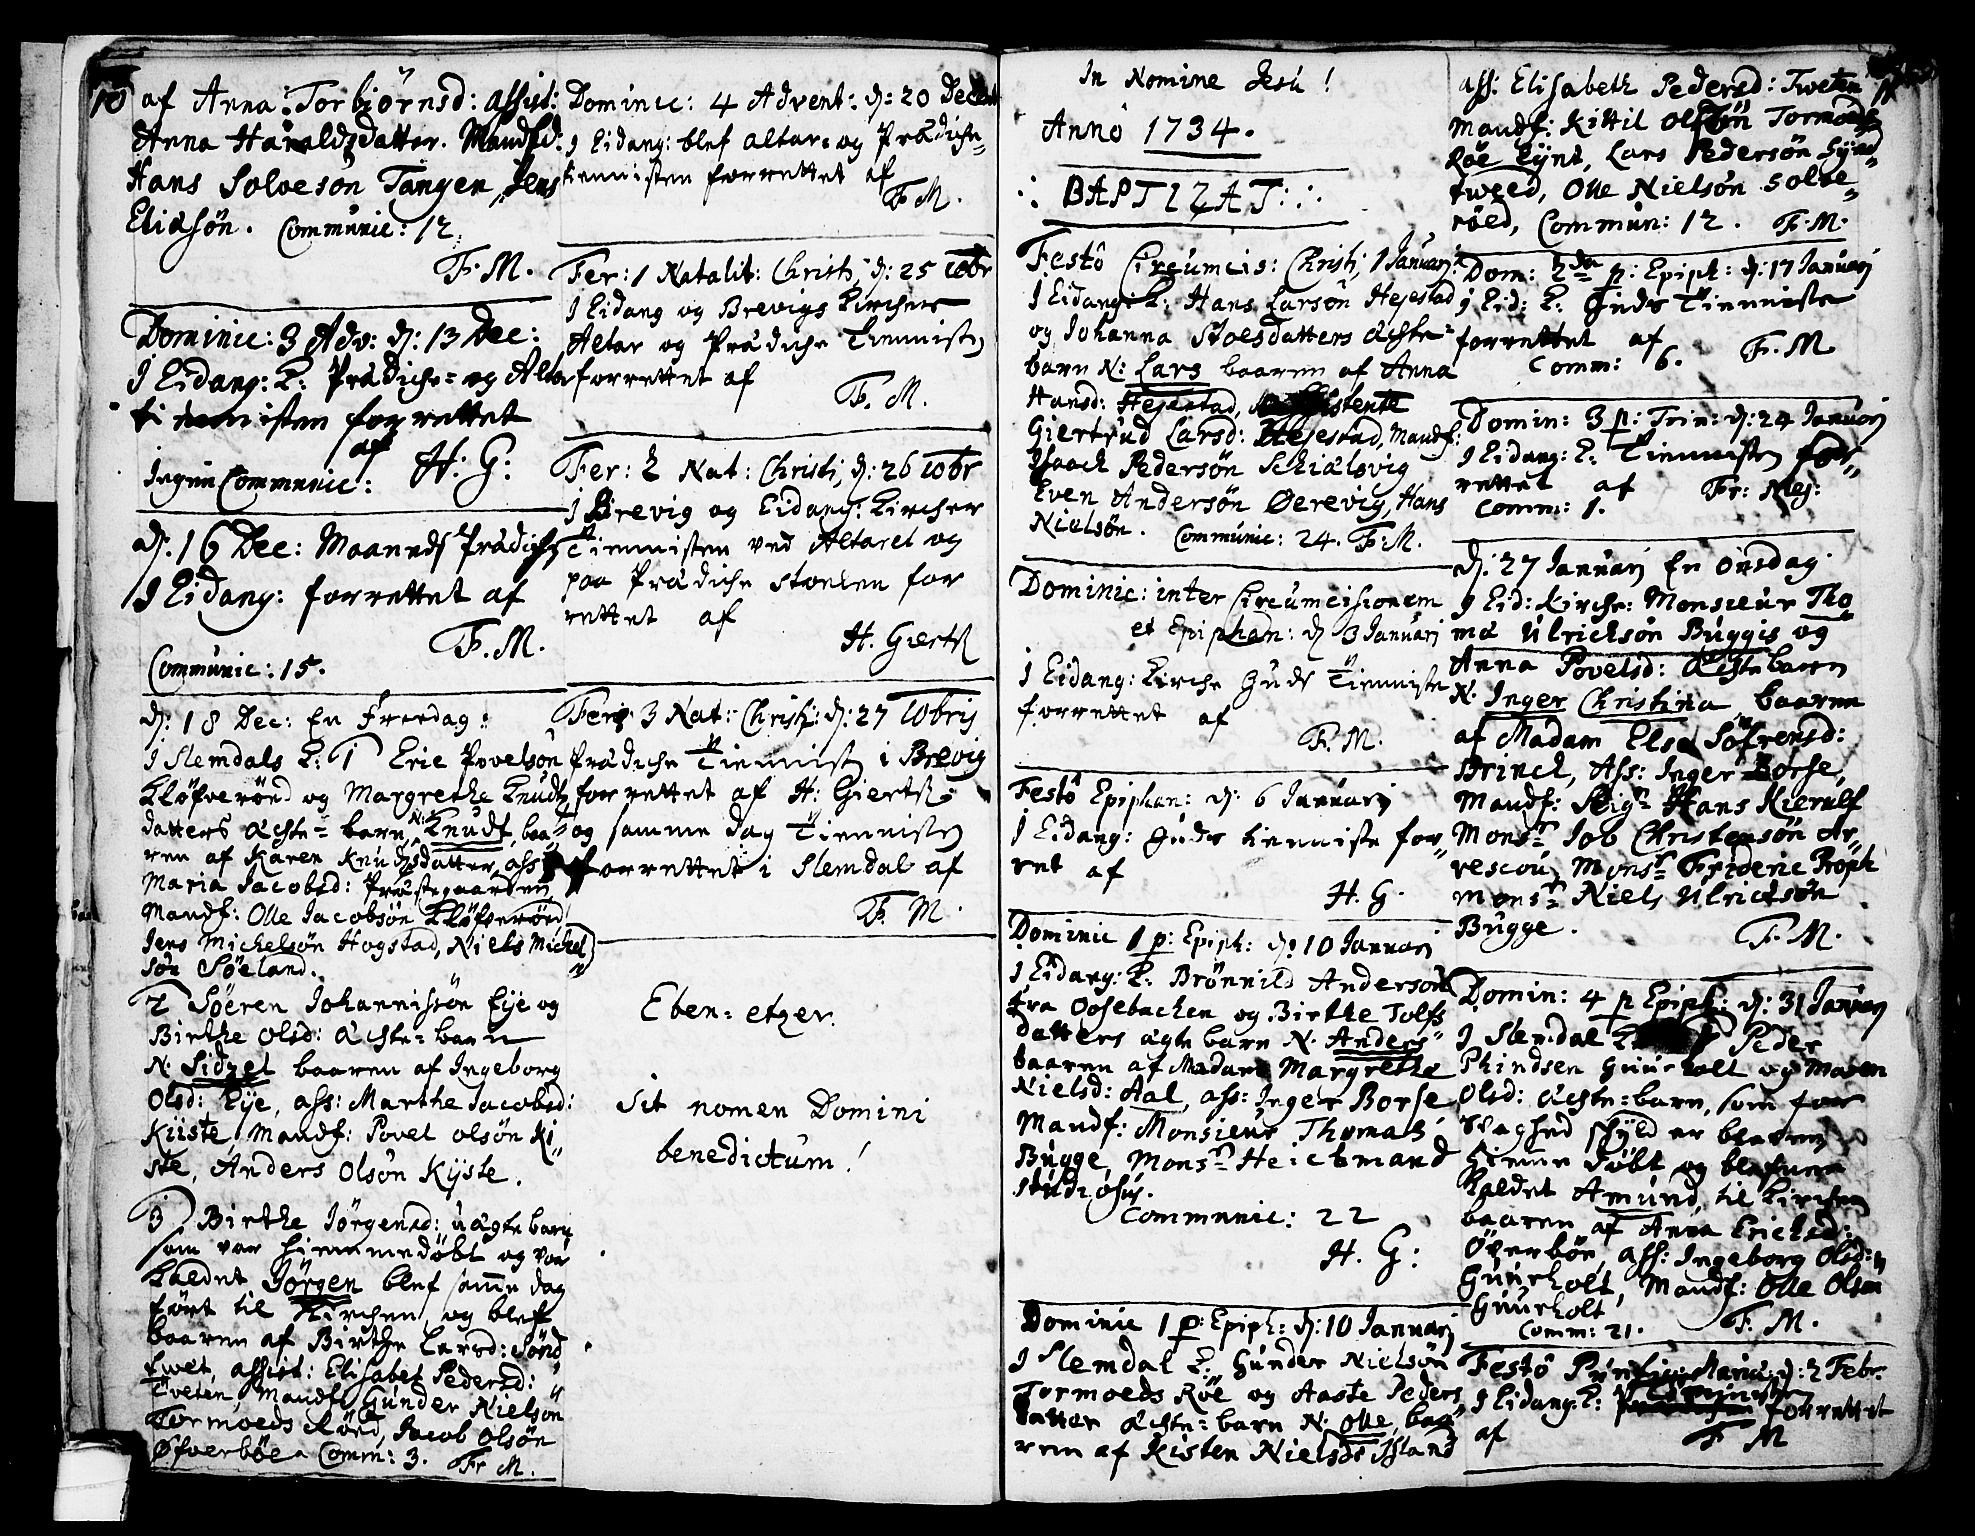 10
af Anna Torbiörnsd: assist:
Anna Haraldsdatter. Mandfd:
Hans Solvesön Tangen, Jens
Eliasön. Communic: 12
F. M.
Dominic: 3 Adv: d: 13 Dec:
J Eidang: K: Prædiche- og Altar
tienisten forrettet
af H: G:
Ingen Communic:
d: 16 Dec: Maaneds Prædichen
J Eidang: forrettet af
F. M.
Communic: 15.
d: 18 Dec: En Fredag:
J Slemdals K: 1 Eric Povelsön
Kløfverönd og Margrethe Knuds
datters ächte- barn N: Knudt, baa-
ren af Karen Knudsdatter, ass:
Maria Jacobsd: Præstegaarden
Mandf: Olle Jacobsön Kløfverönd
Jens Michelsön Hogstad, Niels Michel
sön Söeland.
2 Söeren Johannissön Eye og
Birthe Olsd: ächte- barn
N: Sidzel baaren af Ingeborg
Olsd: Eye, ass: Marthe Jacobsd:
Kiiste, Mandf: Povel Olsön Ki-
ste, Anders Olsön Kyste.
3 Birthe Jörgensd: uägte barn
som var hiemmedöbt og var
kaldet Jörgen blef samme dag
fört til Kirchen, og blef
baaren af Birthe Larsd: Sönd
twet, assist: Elisabet Pedersd:
Tveten, Mandf: Gunder Nielsön
Tormoeds Rönd, Jacob Olsön
Øfverböe. Comm: 3. Fr M.
Dominic: 4 Advent: d: 20 Decemb
J Eidang: blef altar- og Prædiche-
tienisten forrettet af
F. M.
Fer: 1 Natalit: Christi, d: 25 10br
J Eidang og Brevigs Kircher
Altar og Prædiche Tiennisten
forrettet af
F. M.
Fer: 2 Nat: Christi, d: 26 10br
J Brevig og Eidang: Kircher
Tiennisten ved Altaret og
paa Prædiche stoelen for
rettet af
H. Giertz
Fer: 3 Nat: Christi: d: 27 10bris
Prædiche Tiennist i Brevig
forrettet af H: Giertz
og samme dag Tiennisten
forrettet i Slemdal af
F. M.
Eben- etzer.
Sit nomen Domini
benedictum!
In Nomine Jesu!
Anno 1734.
BAPTIZAT:
Festô Circumcis: Christi, 1 Januarj:
J Eidang: K: Hans Larsön Hejestad
og Johanna Stoesdatters ächte-
barn N: Lars baaren af Anna
Hansd: Hejestad, assistente
Giertrud Larsd: Hejestad, Mandf:
Isaach Pedersön Schialsvig
Even Andersön Øerevig, Hans
Nielsön. Communic: 24. F. M.
Dominic: inter Circumcisionem
et Epiphan: d: 3 Januarj
J Eidang: Kirche Guds Tienniste
forrettet af
F. M.
Festô Epiphan: d: 6 Januarij
J Eidang: Guds tienniste for-
ret af
H. G.
Dominic 1 p: Epiph: d: 10 Januarj
J Eidang: K: Brönnild Andersön
fra Oosebachen og Birthe Tolfs
datters ägte barn N: Anders
baaren af Madam Margrethe
Nielsd: Aal, ass: Inger Borse
Mandf: Monsieur Thomas
Bugge, Monsr Heichmand
studiosus.
Communic: 22
H. G:
Dominic 1 p: Epiph: d: 10 Januarj
J Slemdal K: Gunder Nielsön
Tormoeds Röe og Aaste Peders
datter ächte- barn N: Olle, baa-
ren af Kisten Nielsds: Island
ass: Elisabeth Pedersd: Tweten
Mandf: Kittil Olssön Tormods
Röe Eynt, Lars Pedersön Synd-
tweed, Olle Nielsön Solve-
röed, Commun: 12. F. M.
Dom: 2da p: Epiph: d: 17 Januarj
J Eid: K: Guds Tienniste
forrettet af
Comm: 6. F. M.
Domin: 3 p: Trin: d: 24 Januarj
J Eidang: K: Tiennisten for-
rettet af Fr: Mej:
Comm: 1.
d: 27 Januarj En Onsdag
J Eid: Kirche: Monsieur Tho
ma Ulrichsön Buggis og
Anna Povelsd: ächte barn
N: Inger Christina baaren
af Madam Elsa Söfrensd:
Brinch, Ass: Inger Borse,
Mandf: Seigr Hans Kierulf
Monsr Job Christensön Ar
rescou, Monsr Frideric Proph
Monsr Niels Ulrictsön
Bugge. F. M.
Domin: 4 p Epiph: d: 31 Januarj
J Slemdal Peder
Phindsen Guurholt og Maren
Olsd: ächte- barn, som for
svaghed schyld er blevet
hieme döbt og blefven
kaldet Amund, til Kirchen
baaren af Anna Erichsd:
Överböe, ass: Ingeborg Olsd:
Guurholt, Mandf: Olle Olsen
Guurholt
Comm: 21. F. M.
Festô Purific: Mariæ d: 2 Febr.
J Eidang: K: Tiennisten forrettet
af F M